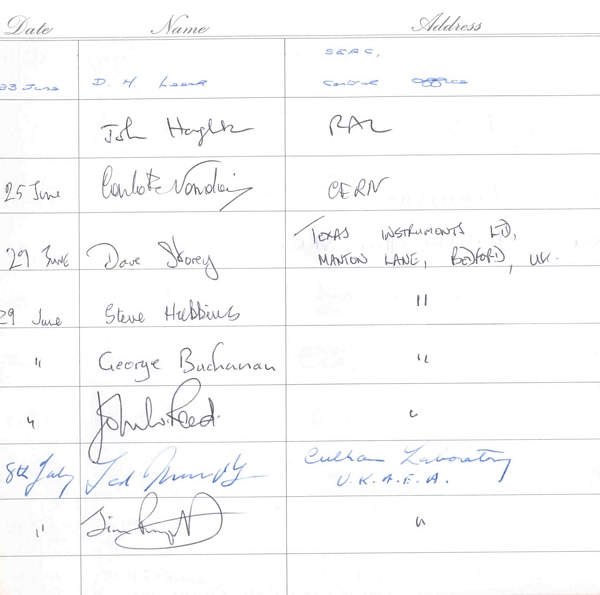 Date Name Address
SERC,
23 June D. H. Central Office
John RAL
25 June CERN
TEXAS INSTRUMENTS LTD,
29 June Dave Storey MANTON LANE, BEDFORD, UK.
29 June Steve Hubbins "
" George Buchanan "
" John W. Reed "
8th July Ted Culham Laboratory
U.K.A.E.A.
" Jim "